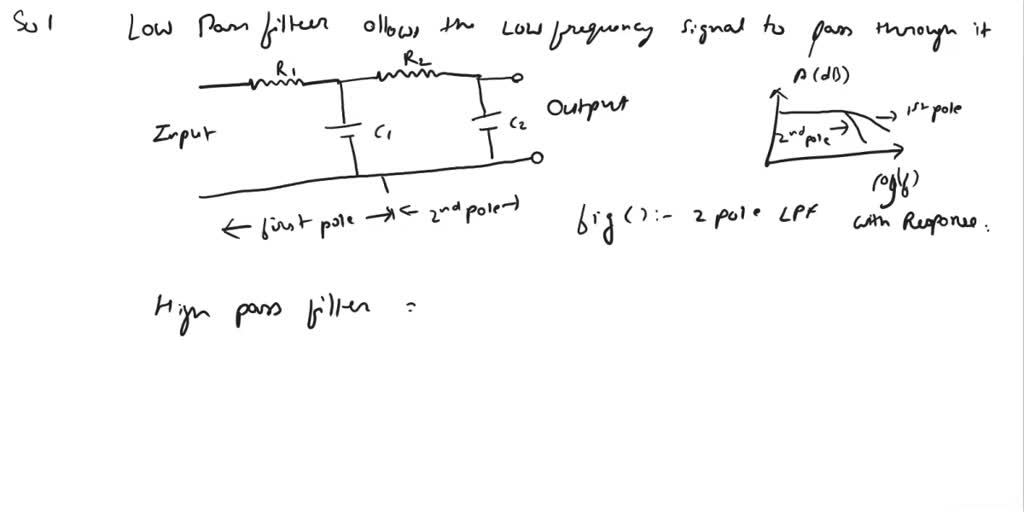 Sol Low Pass filter allows the Low frequency signal to pass through it
R1
R2
A (dB)
Input
C1
C2
Output
1st pole
2nd pole
log(f)
← first pole → ← 2nd pole →
fig ( ) :- 2 pole LPF with Response.
High pass filter =